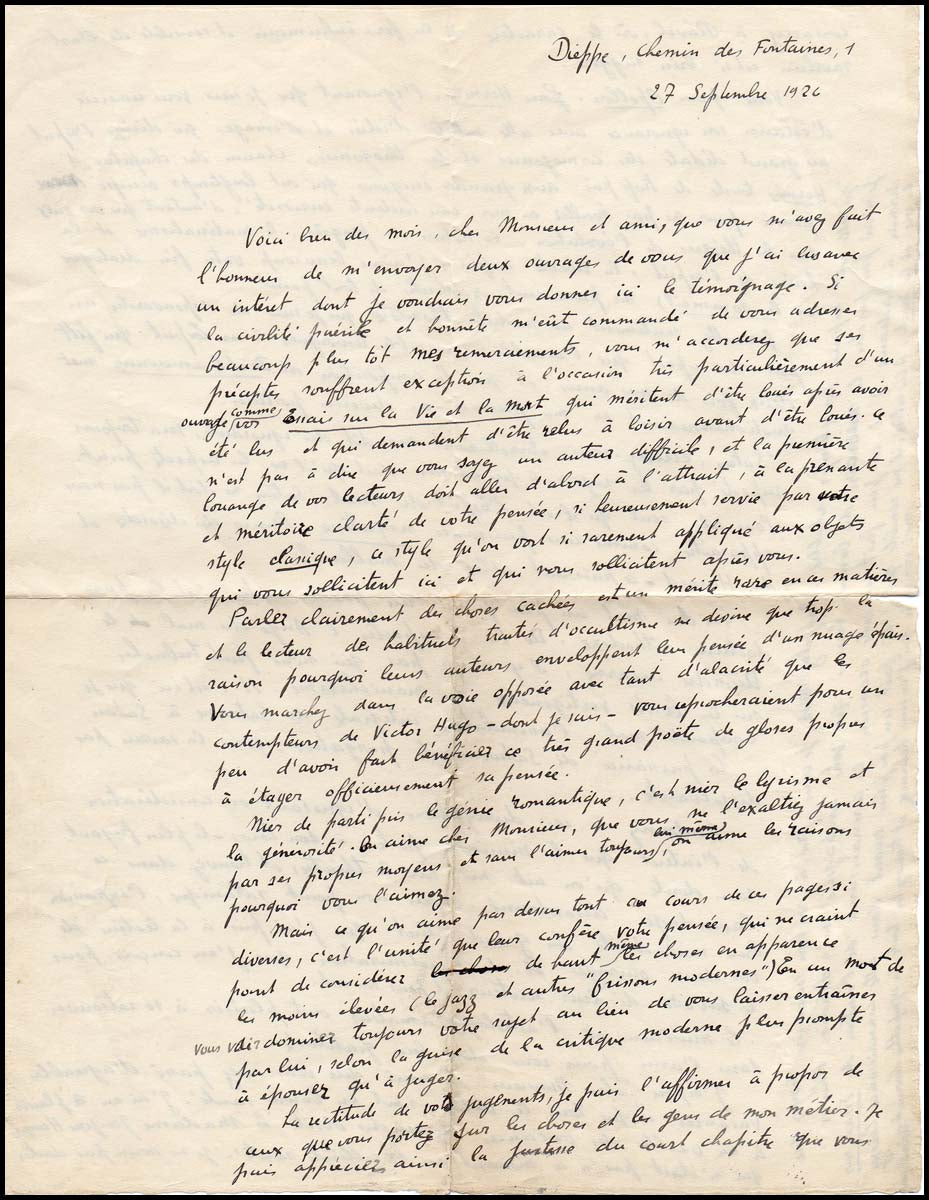 Dieppe, Chemin des Fontaines, 1
27 Septembre 1926
Voici bien des mois, cher Monsieur et ami, que vous m'avez fait
l'honneur de m'envoyer deux ouvrages de vous que j'ai lus avec
un intérêt dont je voudrais vous donner ici le témoignage. Si
la civilité puérile et honnête m'eût commandé de vous adresser
beaucoup plus tôt mes remerciements, vous m'accorderez que ses
préceptes souffrent exception à l'occasion très particulièrement d'un
ouvrage comme vos Essais sur la Vie et la Mort qui méritent d'être loués après avoir
été lus et qui demandent d'être relus à loisir avant d'être loués. Ce
n'est pas à dire que vous soyez un auteur difficile, et la première
louange de vos lecteurs doit aller d'abord à l'attrait, à la prenante
et méritoire clarté de votre pensée, si heureusement servie par votre
style classique, ce style qu'on voit si rarement appliqué aux objets
qui vous sollicitent ici et qui nous sollicitent après vous.
Parler clairement des choses cachées est un mérite rare en ces matières
et le lecteur des habituels traités d'occultisme ne devine que trop la
raison pourquoi leurs auteurs enveloppent leur pensée d'un nuage épais.
Vous marchez dans la voie opposée avec tant d'alacrité que les
contempteurs de Victor Hugo - dont je suis - vous reprocheraient pour un
peu d'avoir fait bénéficier ce très grand poëte de gloses propres
à étayer officieusement sa pensée.
Nier de parti pris le génie romantique, c'est nier le lyrisme et
la générosité. On aime cher Monsieur, que vous ne l'exaltiez jamais
par ses propres moyens et sans l'aimer toujours lui même, on aime les raisons
pourquoi vous l'aimez.
Mais ce qu'on aime par dessus tout au cours de ces pages si
diverses, c'est l'unité que leur confère votre pensée, qui ne craint
point de considérer de haut même les choses en apparence
les moins élevées (le jazz et autres "frissons modernes") En un mot de
vous voir dominer toujours votre sujet au lieu de vous laisser entraîner
par lui, selon la guise de la critique moderne plus prompte
à épouser qu'à juger.
La rectitude de vos jugements, je puis l'affirmer à propos de
ceux que vous portez sur les choses et les gens de mon métier. Je
puis apprécier ainsi la justesse du court chapitre que vous